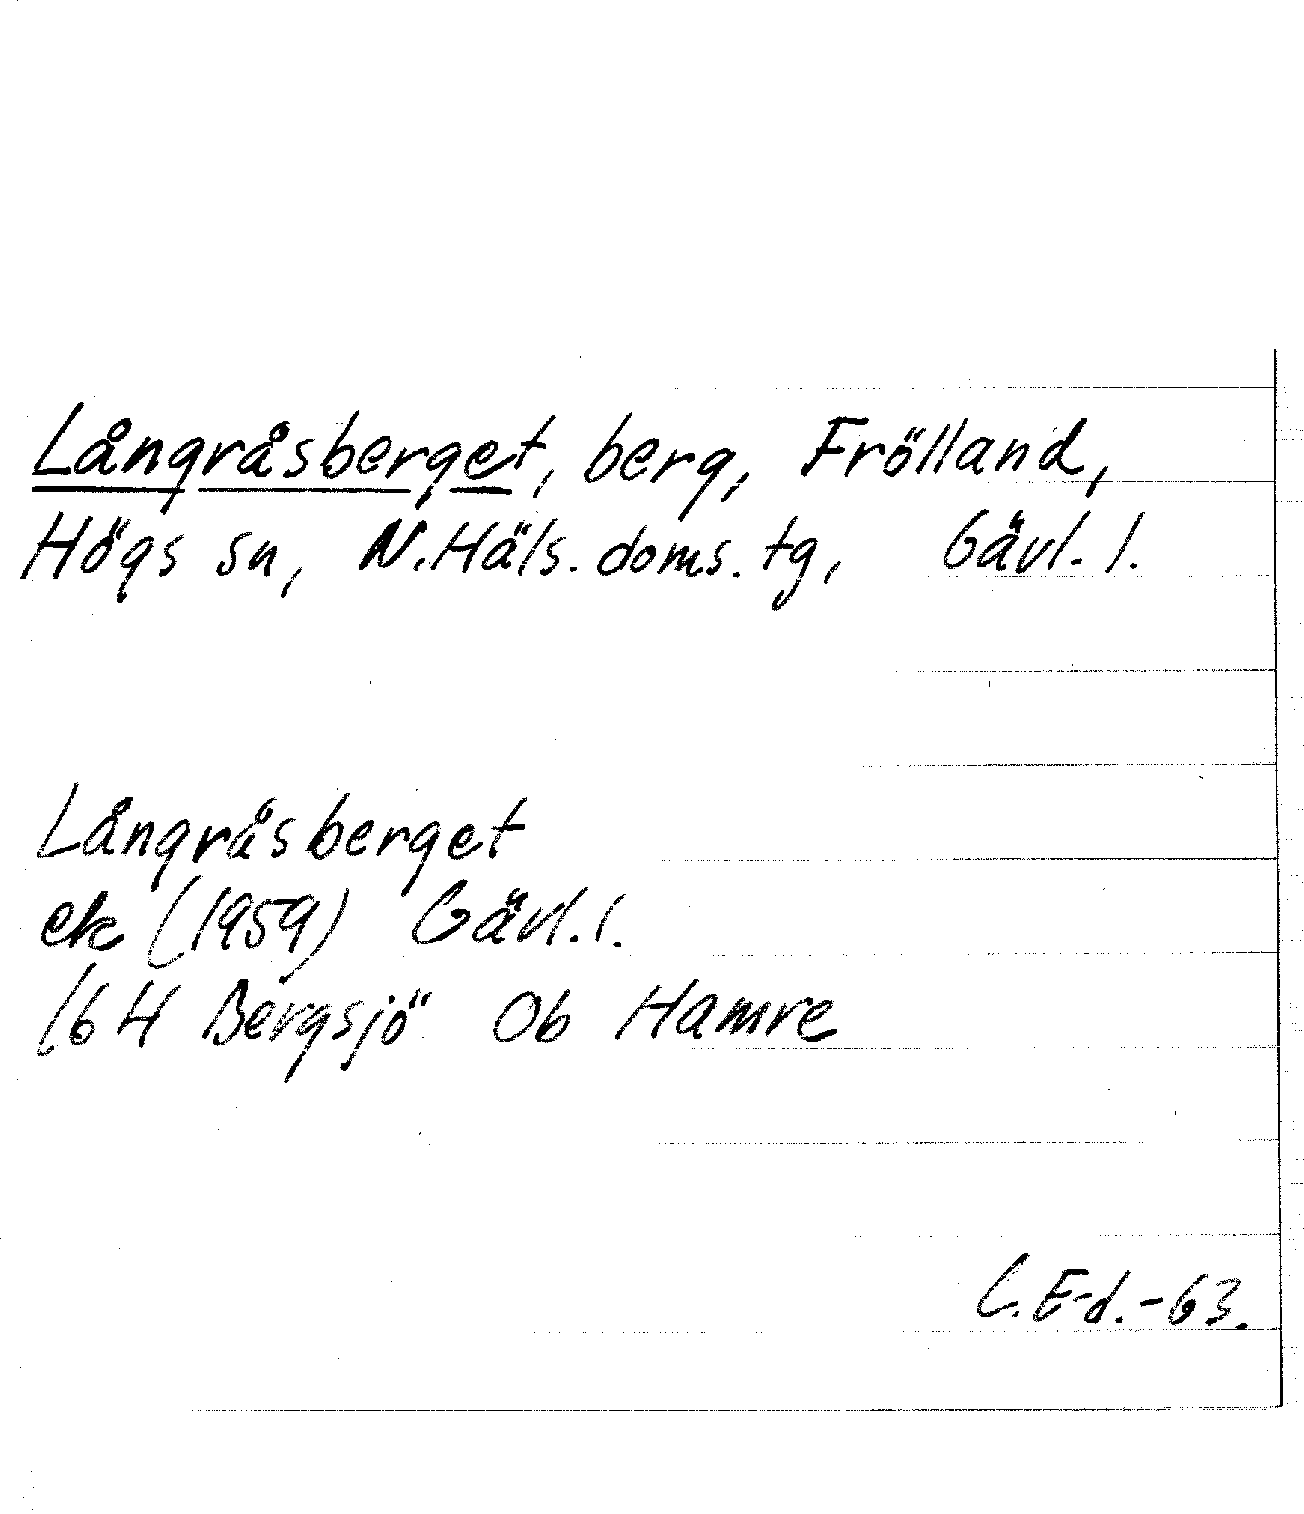 Långråsberget, berg, Frölland,
Högs sn, N.Häls.doms.tg, Gävl.l.
Långråsberget
ek (1959) Gävl.l.
16 H Bergsjö Ob Hamre
C.E-d.-63.